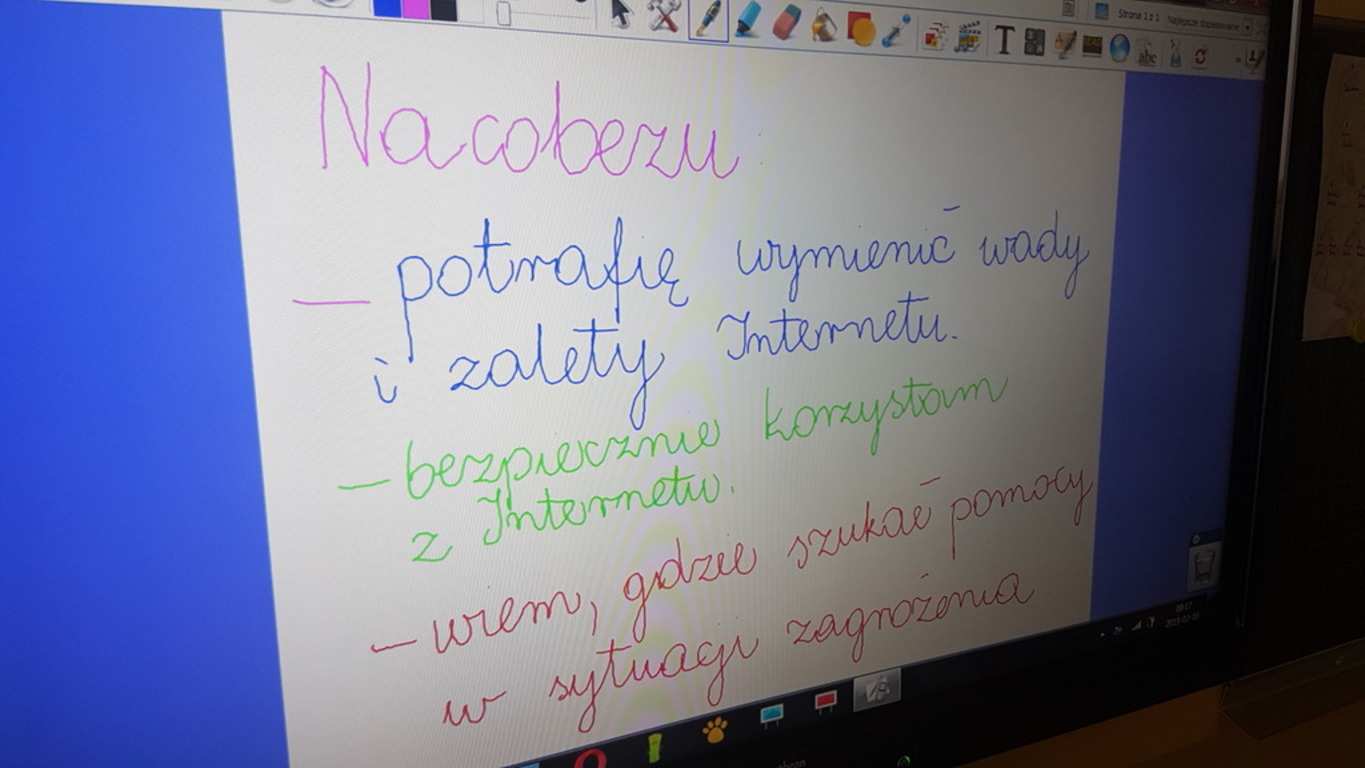 Strona 1 z 1 Najlepsze dopasowanie
T
abc
Nacobezu
— potrafię wymienić wady
i zalety Internetu.
— bezpiecznie korzystam
z Internetu.
— wiem, gdzie szukać pomocy
w sytuacji zagrożenia
09:17